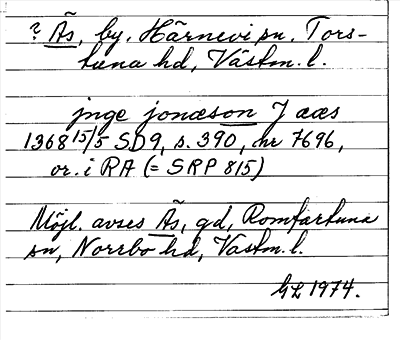 ? Ås, by, Härnevi sn. Tors-
tuna hd, Västm. l.
jnge jonæson J aas
1368 15/5 SD9, s. 390, nr 7696,
or. i RA (= SRP 815)
Möjl. avses Ås, gd, Romfartuna
sn, Norrbo hd, Västm. l.
GL 1974.